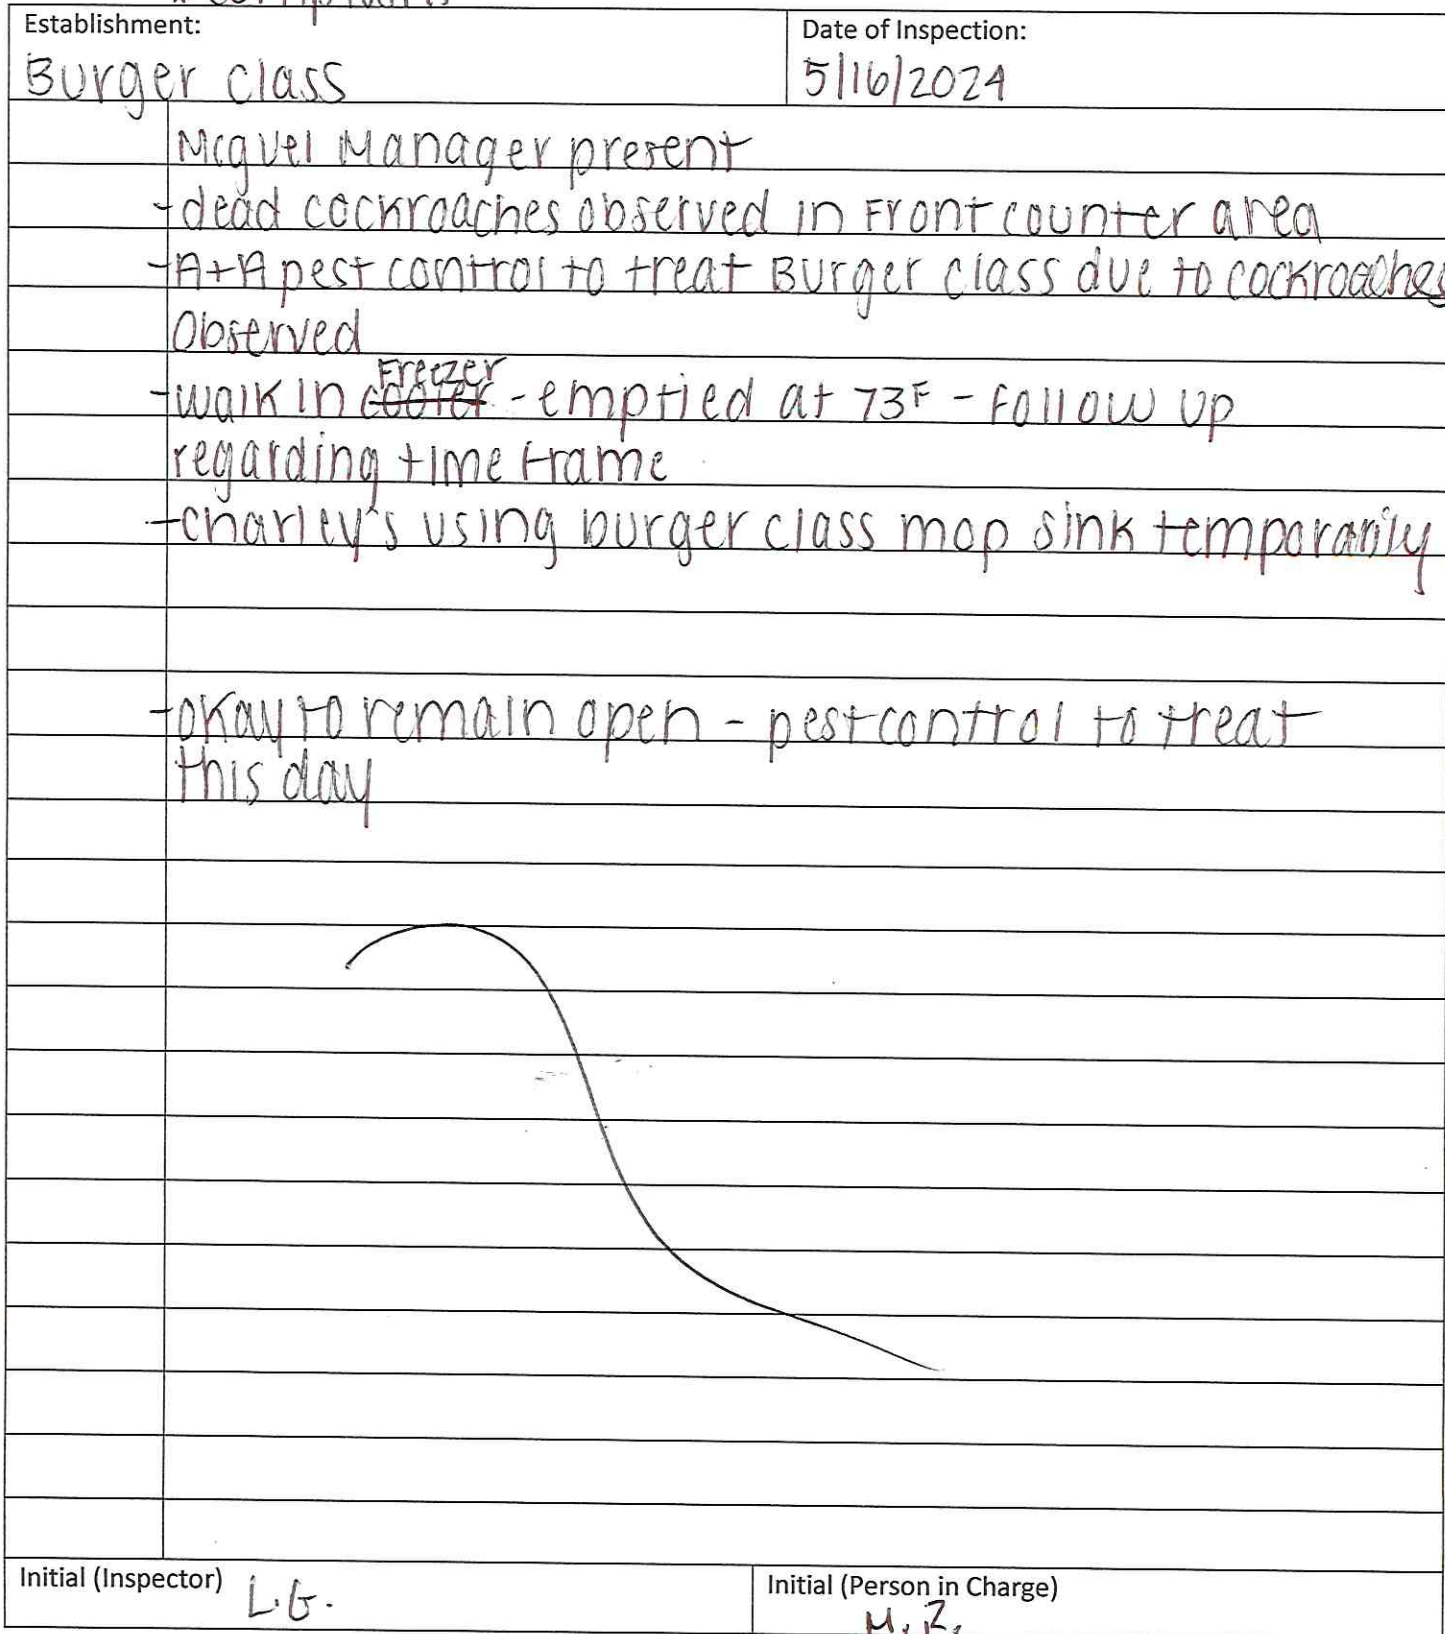 Establishment:
Date of Inspection:
Burger class
5/16/2024
Miguel Manager present
-dead cockroaches observed in Front counter area
-A+A pest control to treat Burger class due to cockroaches
Observed
Freezer
-walk in cooler - emptied at 73F - Follow up
regarding time frame
-charley's using burger class mop sink temporarily
-okay to remain open - pest control to treat
this day
Initial (Inspector) L.G.
Initial (Person in Charge)
M.R.